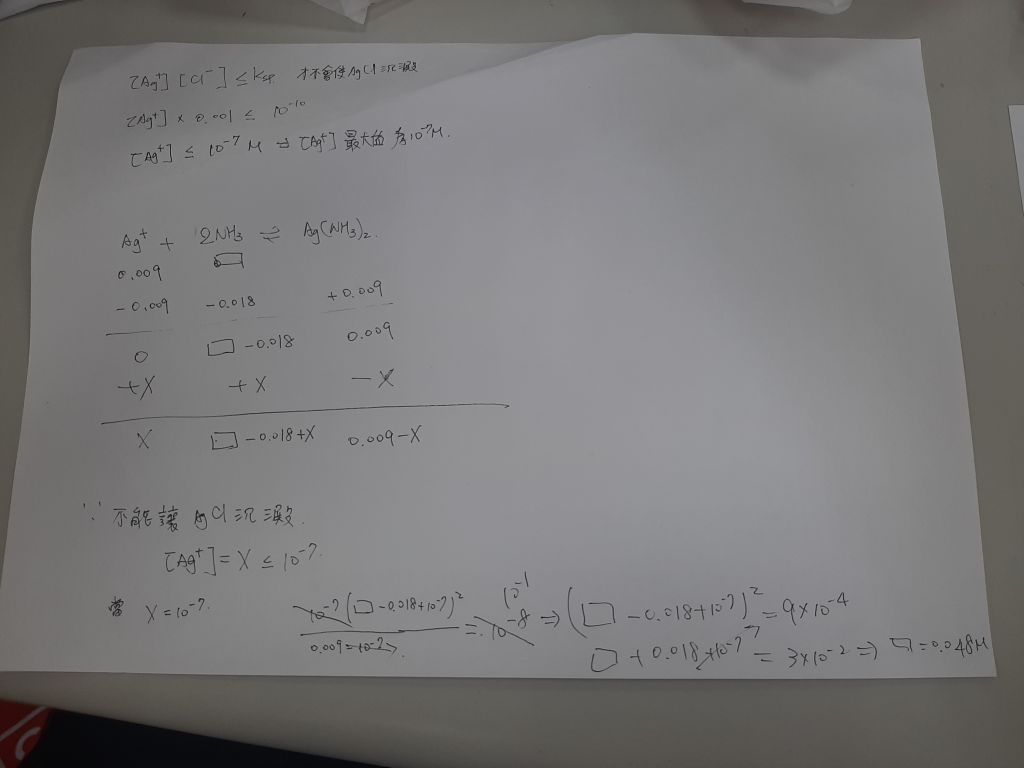 [Ag⁺][Cl⁻] ≤ Ksp 才不會使AgCl沉澱
[Ag⁺] × 0.001 ≤ 10⁻¹⁰
[Ag⁺] ≤ 10⁻⁷ M ⇒ [Ag⁺] 最大值為10⁻⁷M.
Ag⁺ + 2NH₃ ⇌ Ag(NH₃)₂.
0.009 □
-0.009 -0.018 +0.009
0 □ -0.018 0.009
+X +X -X
X □ -0.018+X 0.009-X
∵ 不能讓 AgCl 沉澱.
[Ag⁺] = X ≤ 10⁻⁷.
當 X = 10⁻⁷. 10⁻⁷(□ -0.018+10⁻⁷)² / 0.009-10⁻⁷ = 10⁻⁸ 10⁻¹ ⇒ (□ -0.018+10⁻⁷)² = 9×10⁻⁴
□ + 0.018+10⁻⁷ = 3×10⁻² ⇒ □ = 0.048M